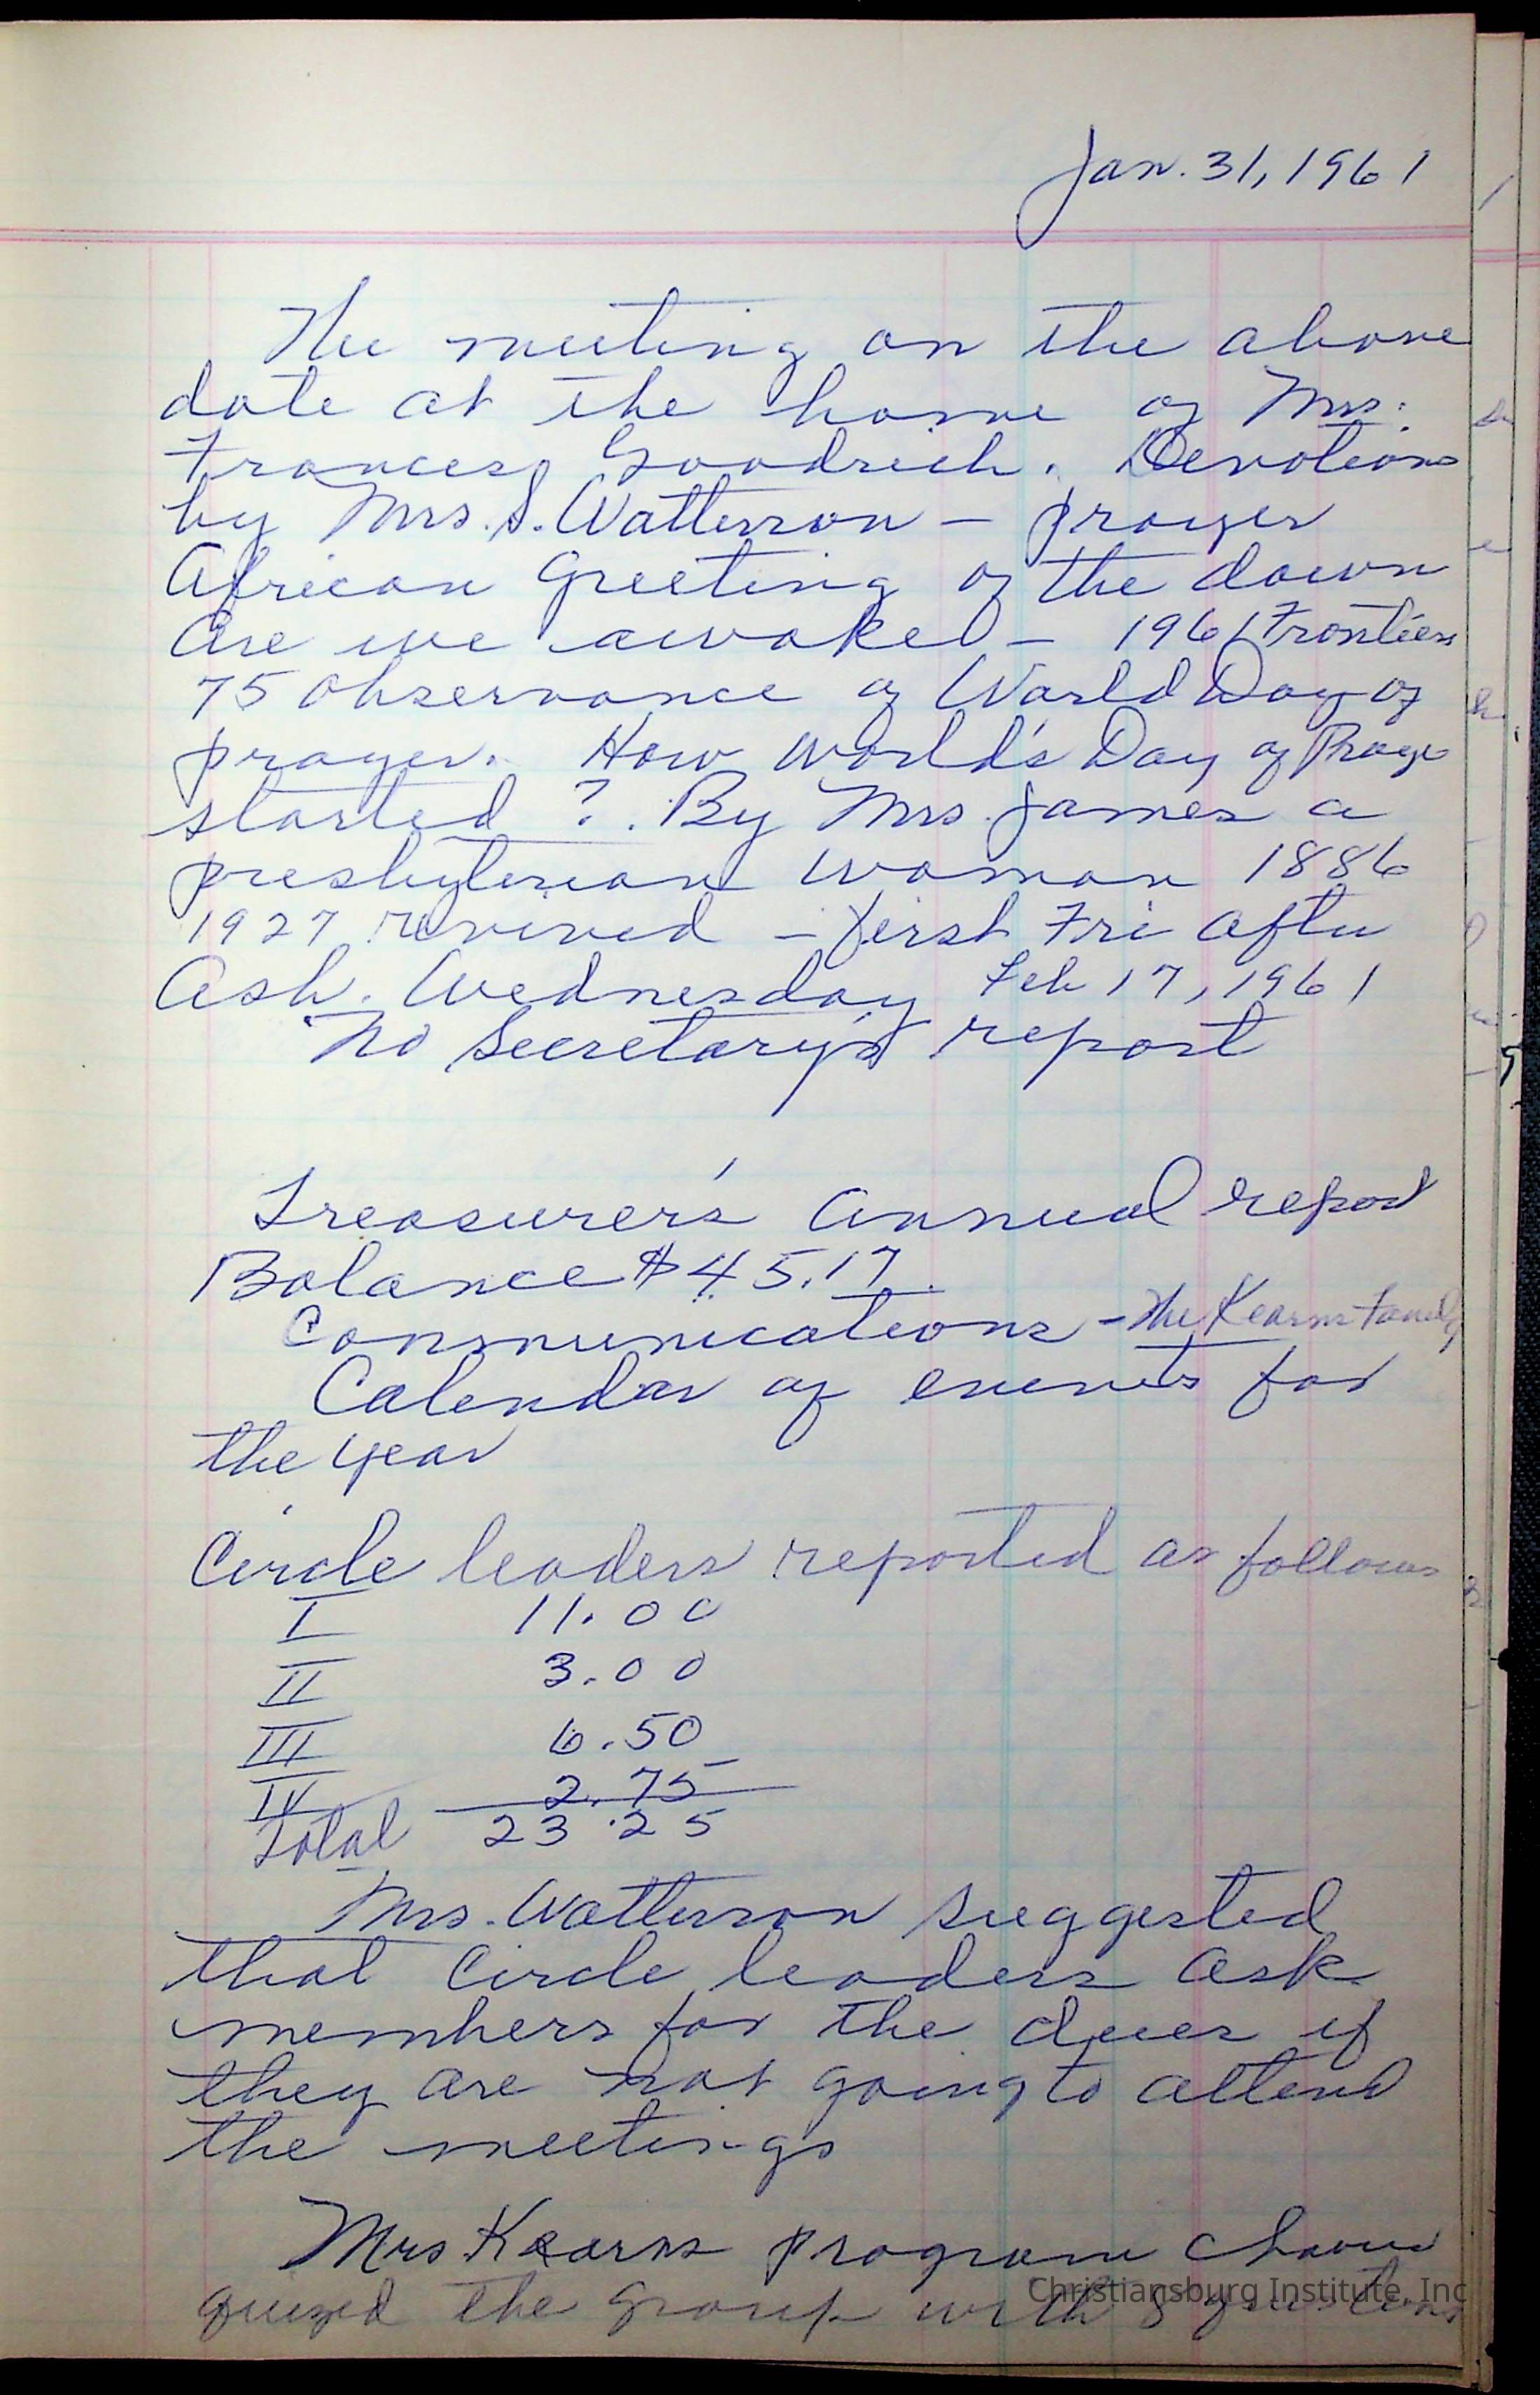 Jan. 31, 1961
The meeting on the above
date at the home of Mrs.
Frances Goodrich. Devotions
by Mrs. S. Watterson - prayer
African Greeting of the dawn
Are we awake - 1961 Frontiers
75 observance of World Day of
prayer. How World's Day of Praye
started ? . By Mrs. James a
presbyterian woman 1886
1927 revived - first Fri after
Ash. Wednesday Feb 17, 1961
No Secretary's report
Treasurer's annual report
Balance $45.17.
Communications - The Kearns Family
Calendar of events for
the year
Circle leaders reported as follows
I 11.00
II 3.00
III 6.50
IV 2.75
Total 23.25
Mrs. Watterson suggested
that Circle leaders ask
members for the dues if
they are not going to attend
the meetings
Mrs Kearns program
quized the group with 8 questions
Christiansburg Institute, Inc